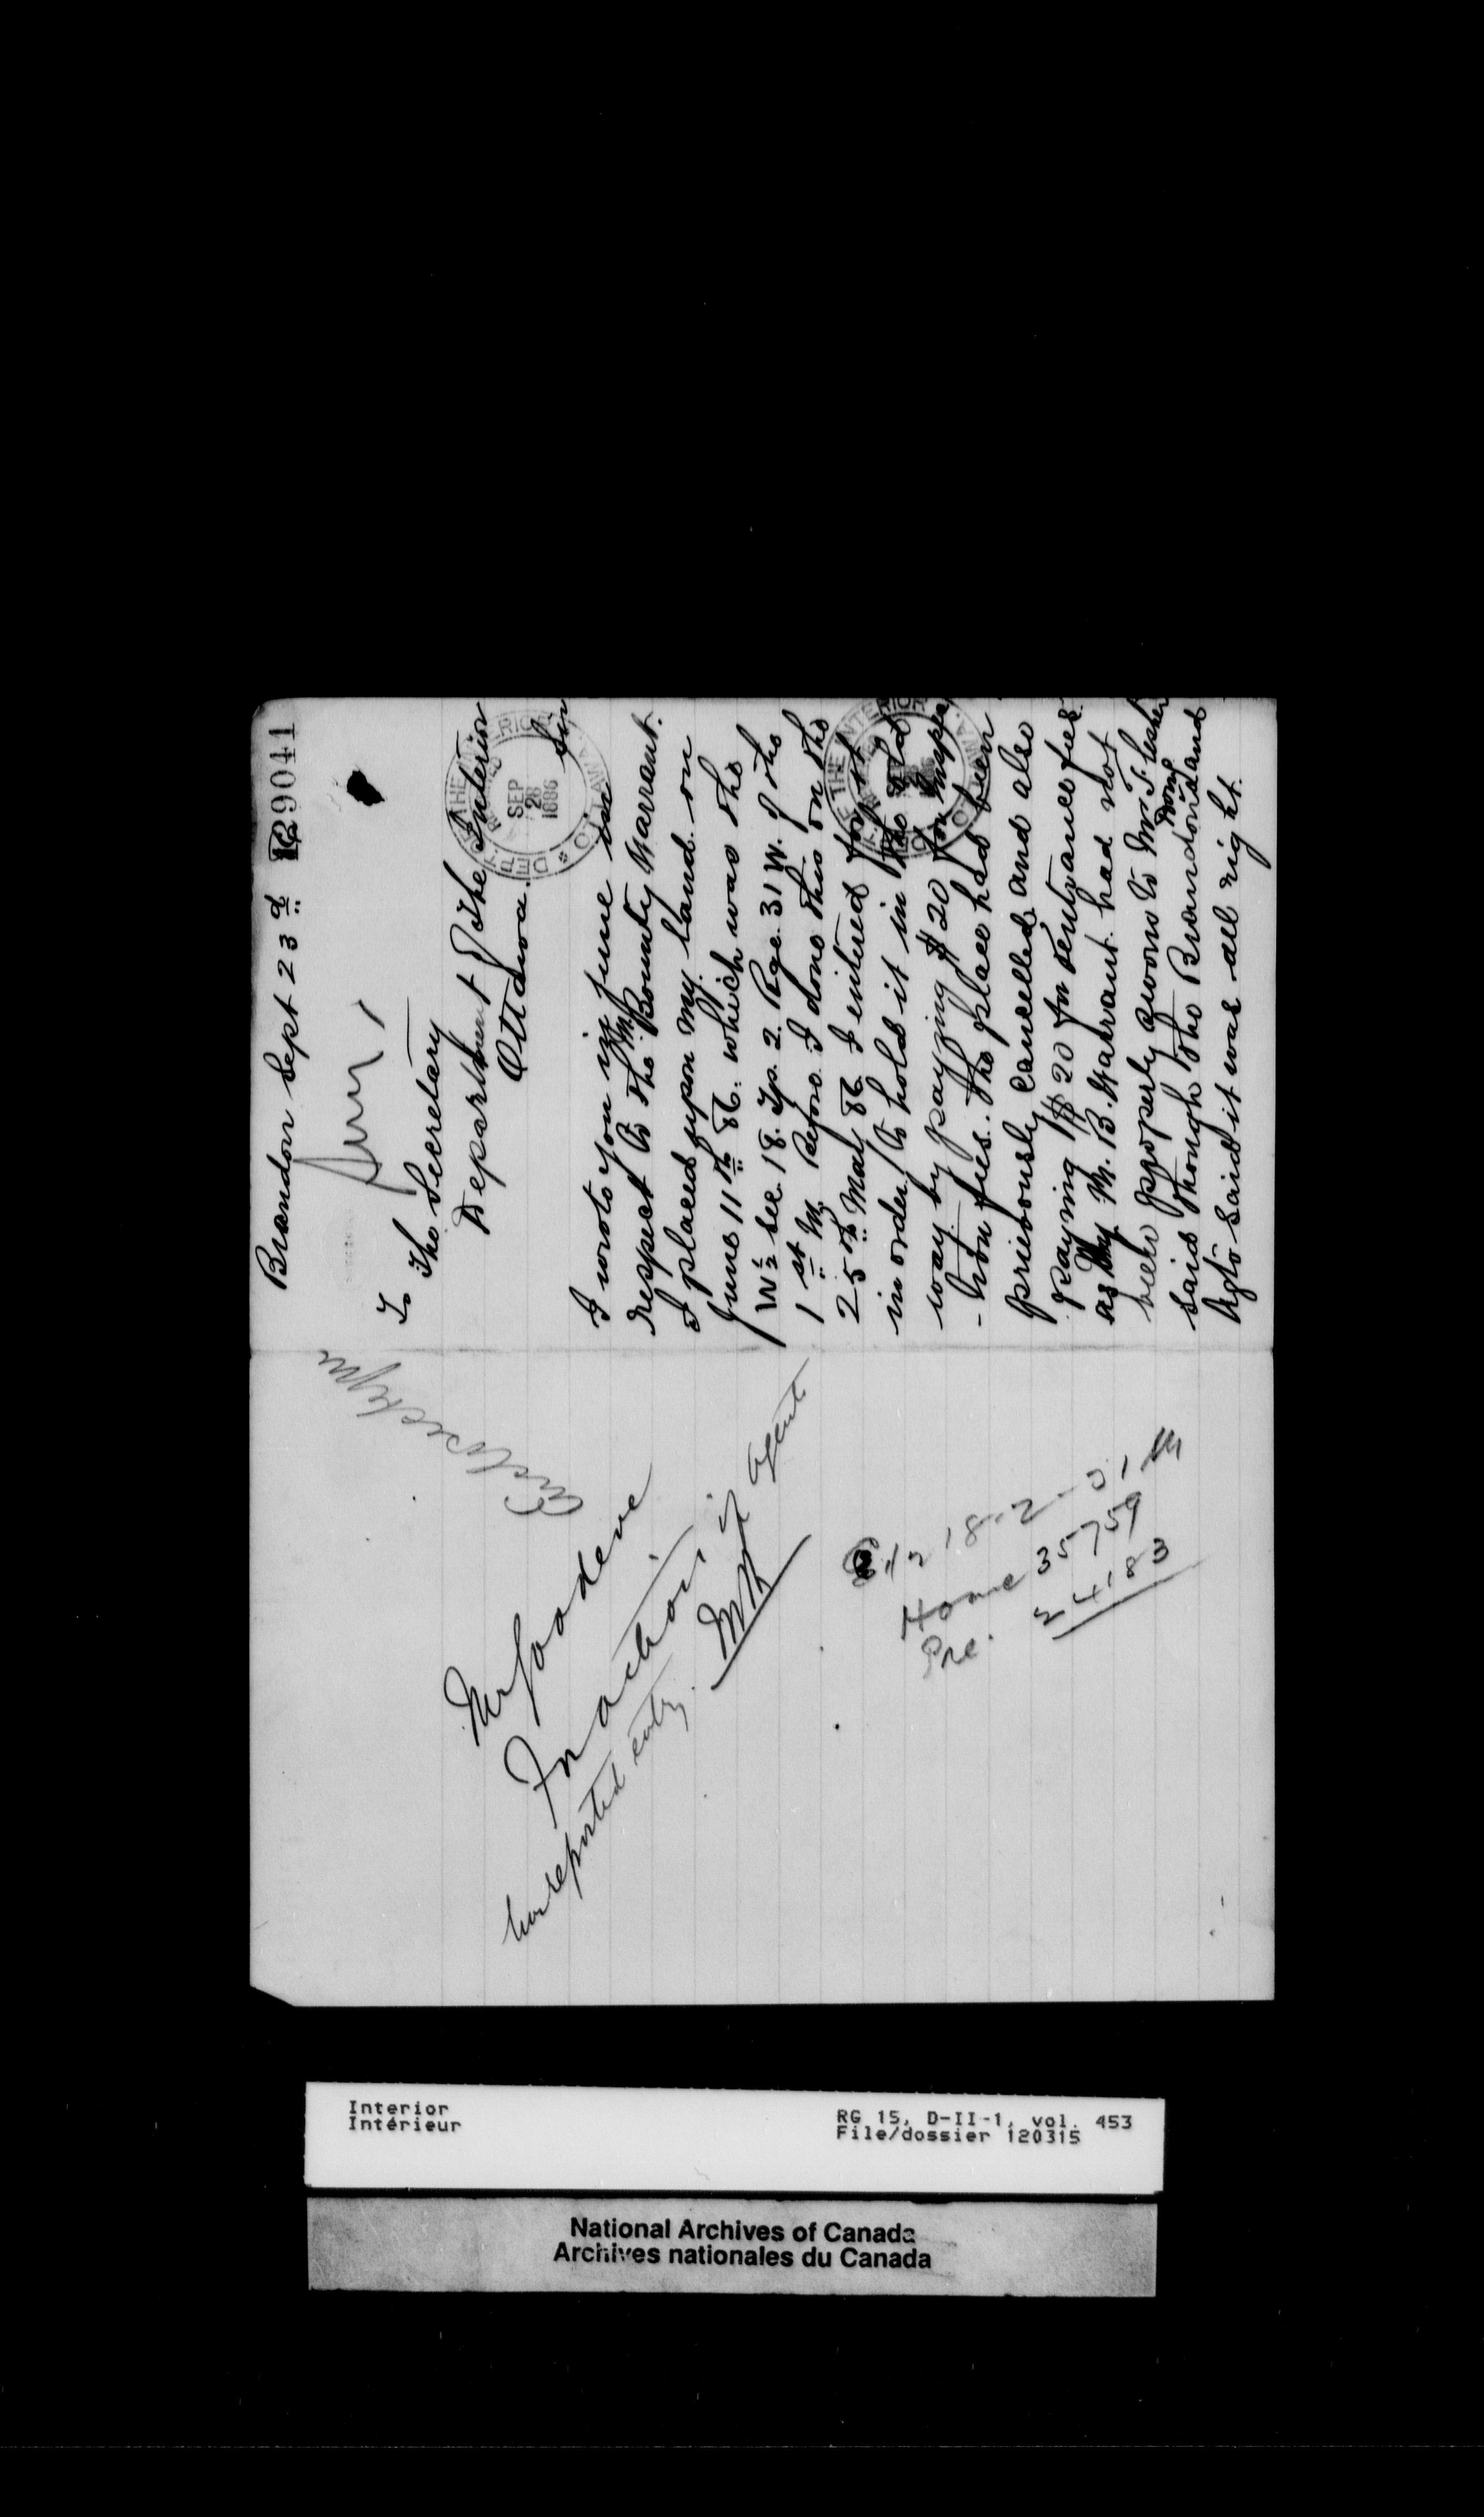 Brandon Sept 23d
129041
To The Secretary
Department of The Interior
Ottawa.
Sir
DEPT OF THE INTERIOR
SEP
28
1886
OTTAWA
I wrote you in june in
respect to the M. Bounty Warrant.
I placed upon my land on
June 11th 86. which was the
W ½ Sec. 18. Tp. 2. Rge. 31 W. of the
1st M. Before I done this on the
25th May 86 I entered for it
in order to hold it in the old
way by paying $20 for inspec
-tion fees. The place had been
priviously cancelled and also
paying $20 for entrance fees
as my M. B. Warrant had not
been properly sworn to Mr. T.
said though the Brandon Dom. Land
Agt. said it was all right.
Mr Goodeve
For action if Agent
has reported entry.
18-2-31 W
Home 35759
Pre. 24183
Interior
Intérieur
RG 15, D-II-1, vol. 453
File/dossier 120315
National Archives of Canada
Archives nationales du Canada